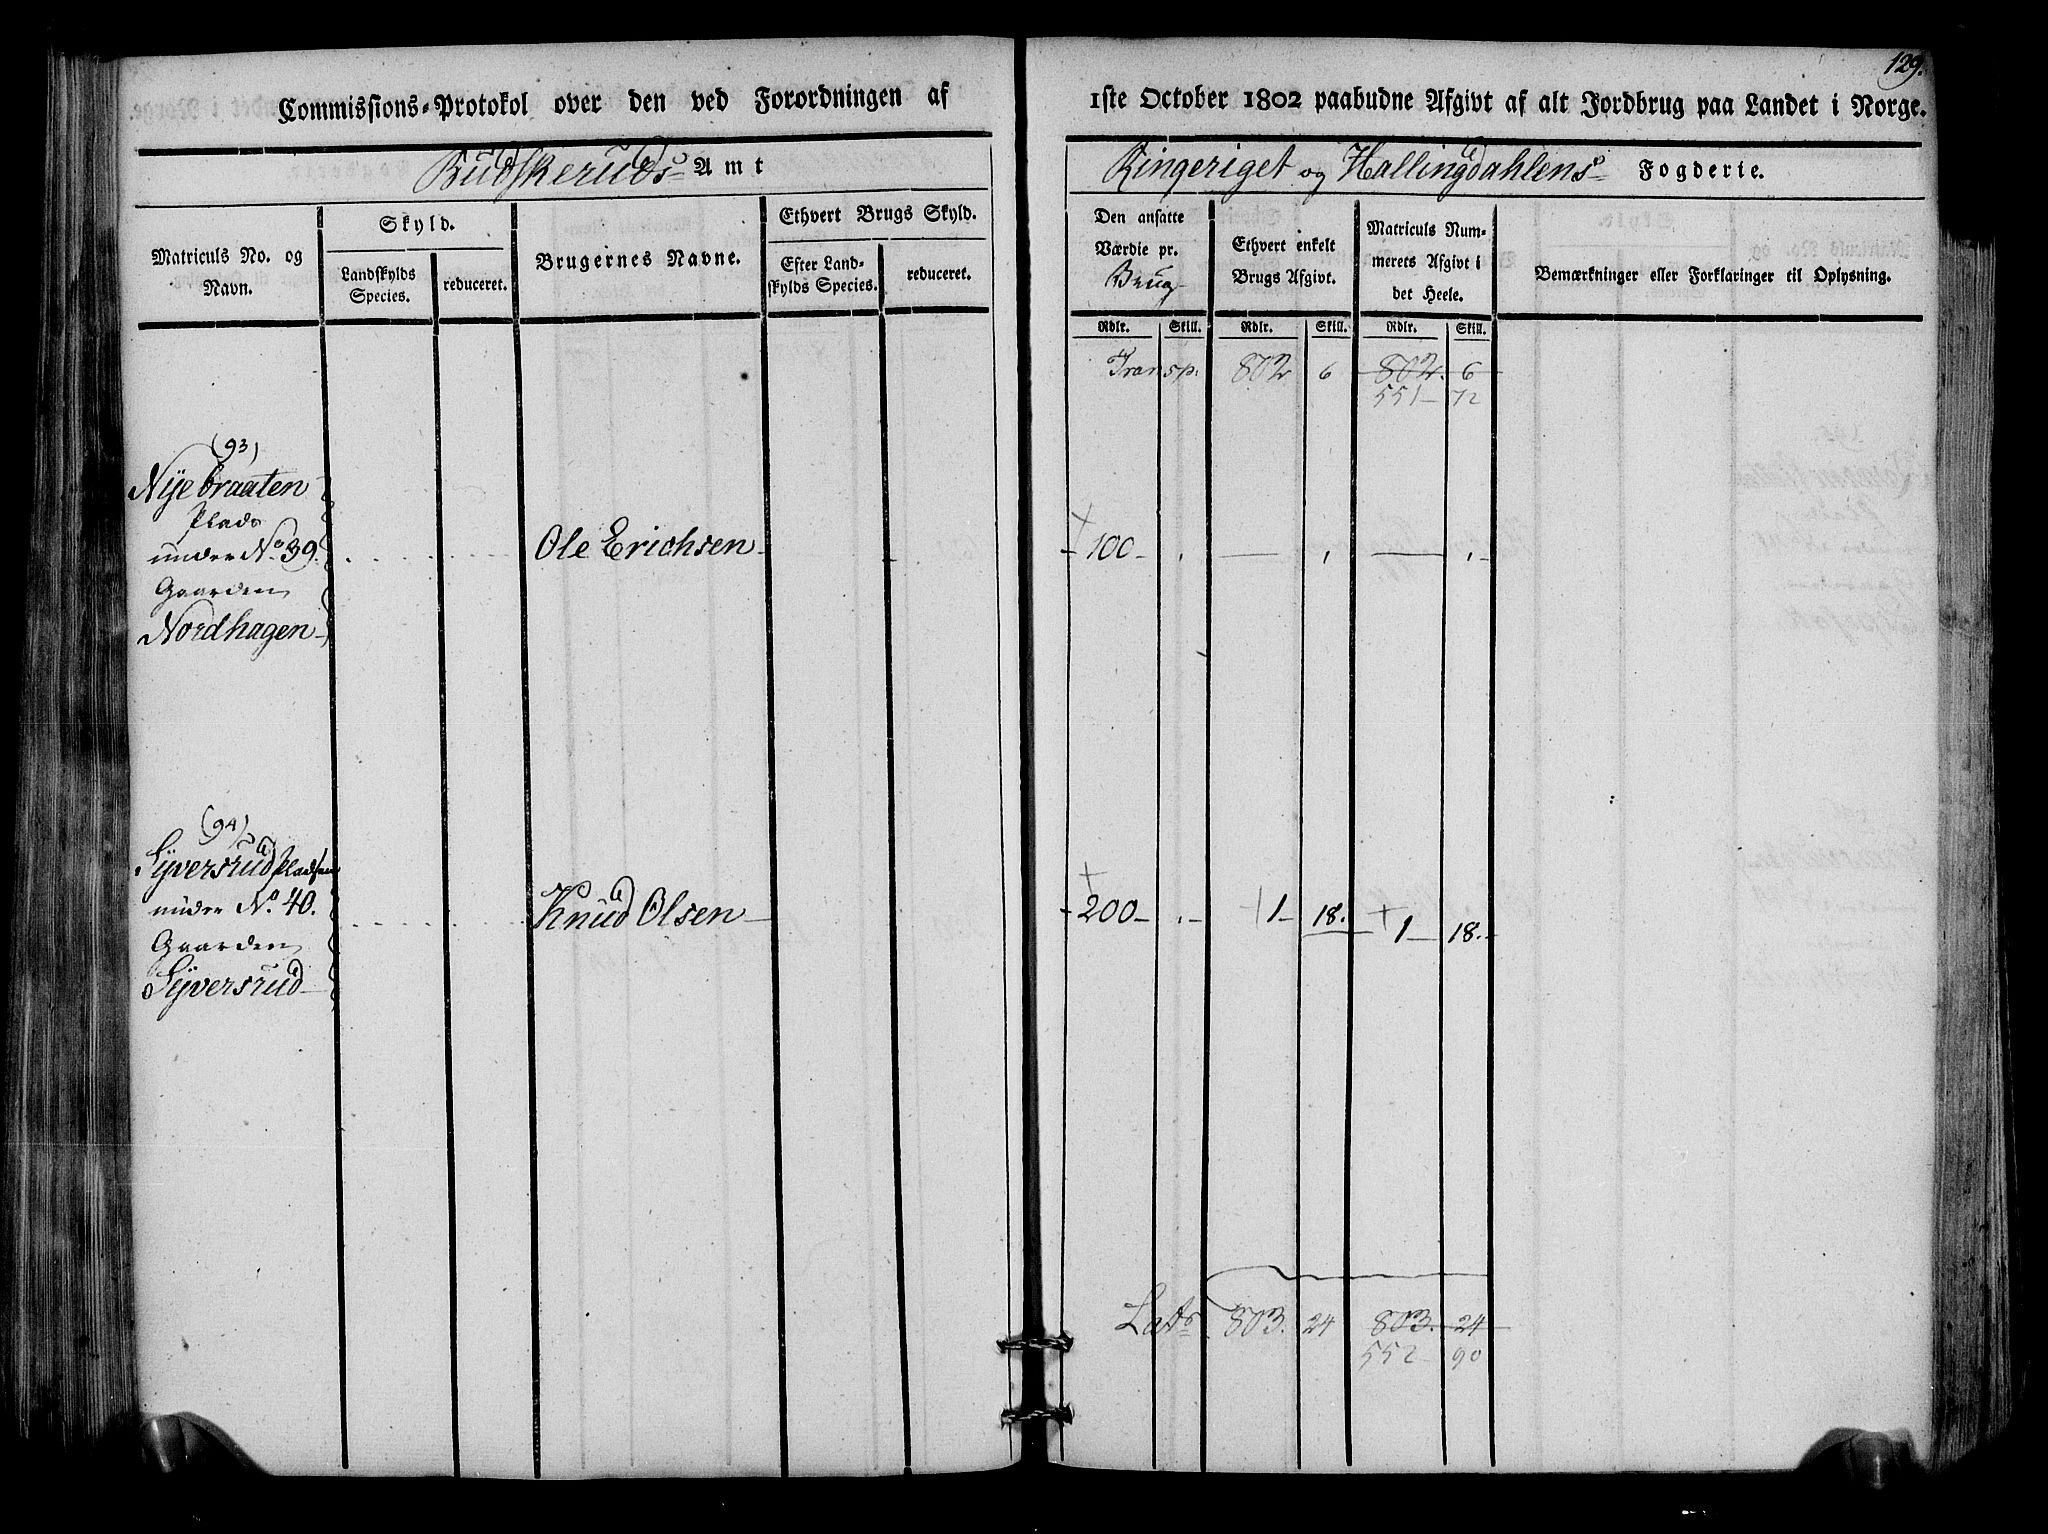 129.
Commissions-Protokol over den ved Forordningen af
1ste October 1802 paabudne Afgivt af alt Jordbrug paa Landet i Norge.
Budskeruds Amt
Ringeriget og Hallingdahlens Fogderie.
Matriculs No. og Navn.
Skyld.
Landskylds Species.
reduceret.
Brugernes Navne.
Ethvert Brugs Skyld.
Efter Landskylds Species.
reduceret.
Den ansatte Værdie pr. Brug
Ethvert enkelt Brugs Afgivt.
Matriculs Nummerets Afgivt i det Heele.
Bemærkninger eller Forklaringer til Oplysning.
Rdlr. Skill. Rdlr. Skill. Rdlr. Skill.
Transp. 802 6 802. 6
551 72
(93)
Nye braaten
Plads
under No. 39.
Gaarden
Nordhagen
Ole Erichsen
100
(94)
Syversrud Pladsen
under No. 40.
Gaarden
Syversrud
Knud Olsen
200 1 18. 1 18.
Lats 803. 24 803. 24
552 90